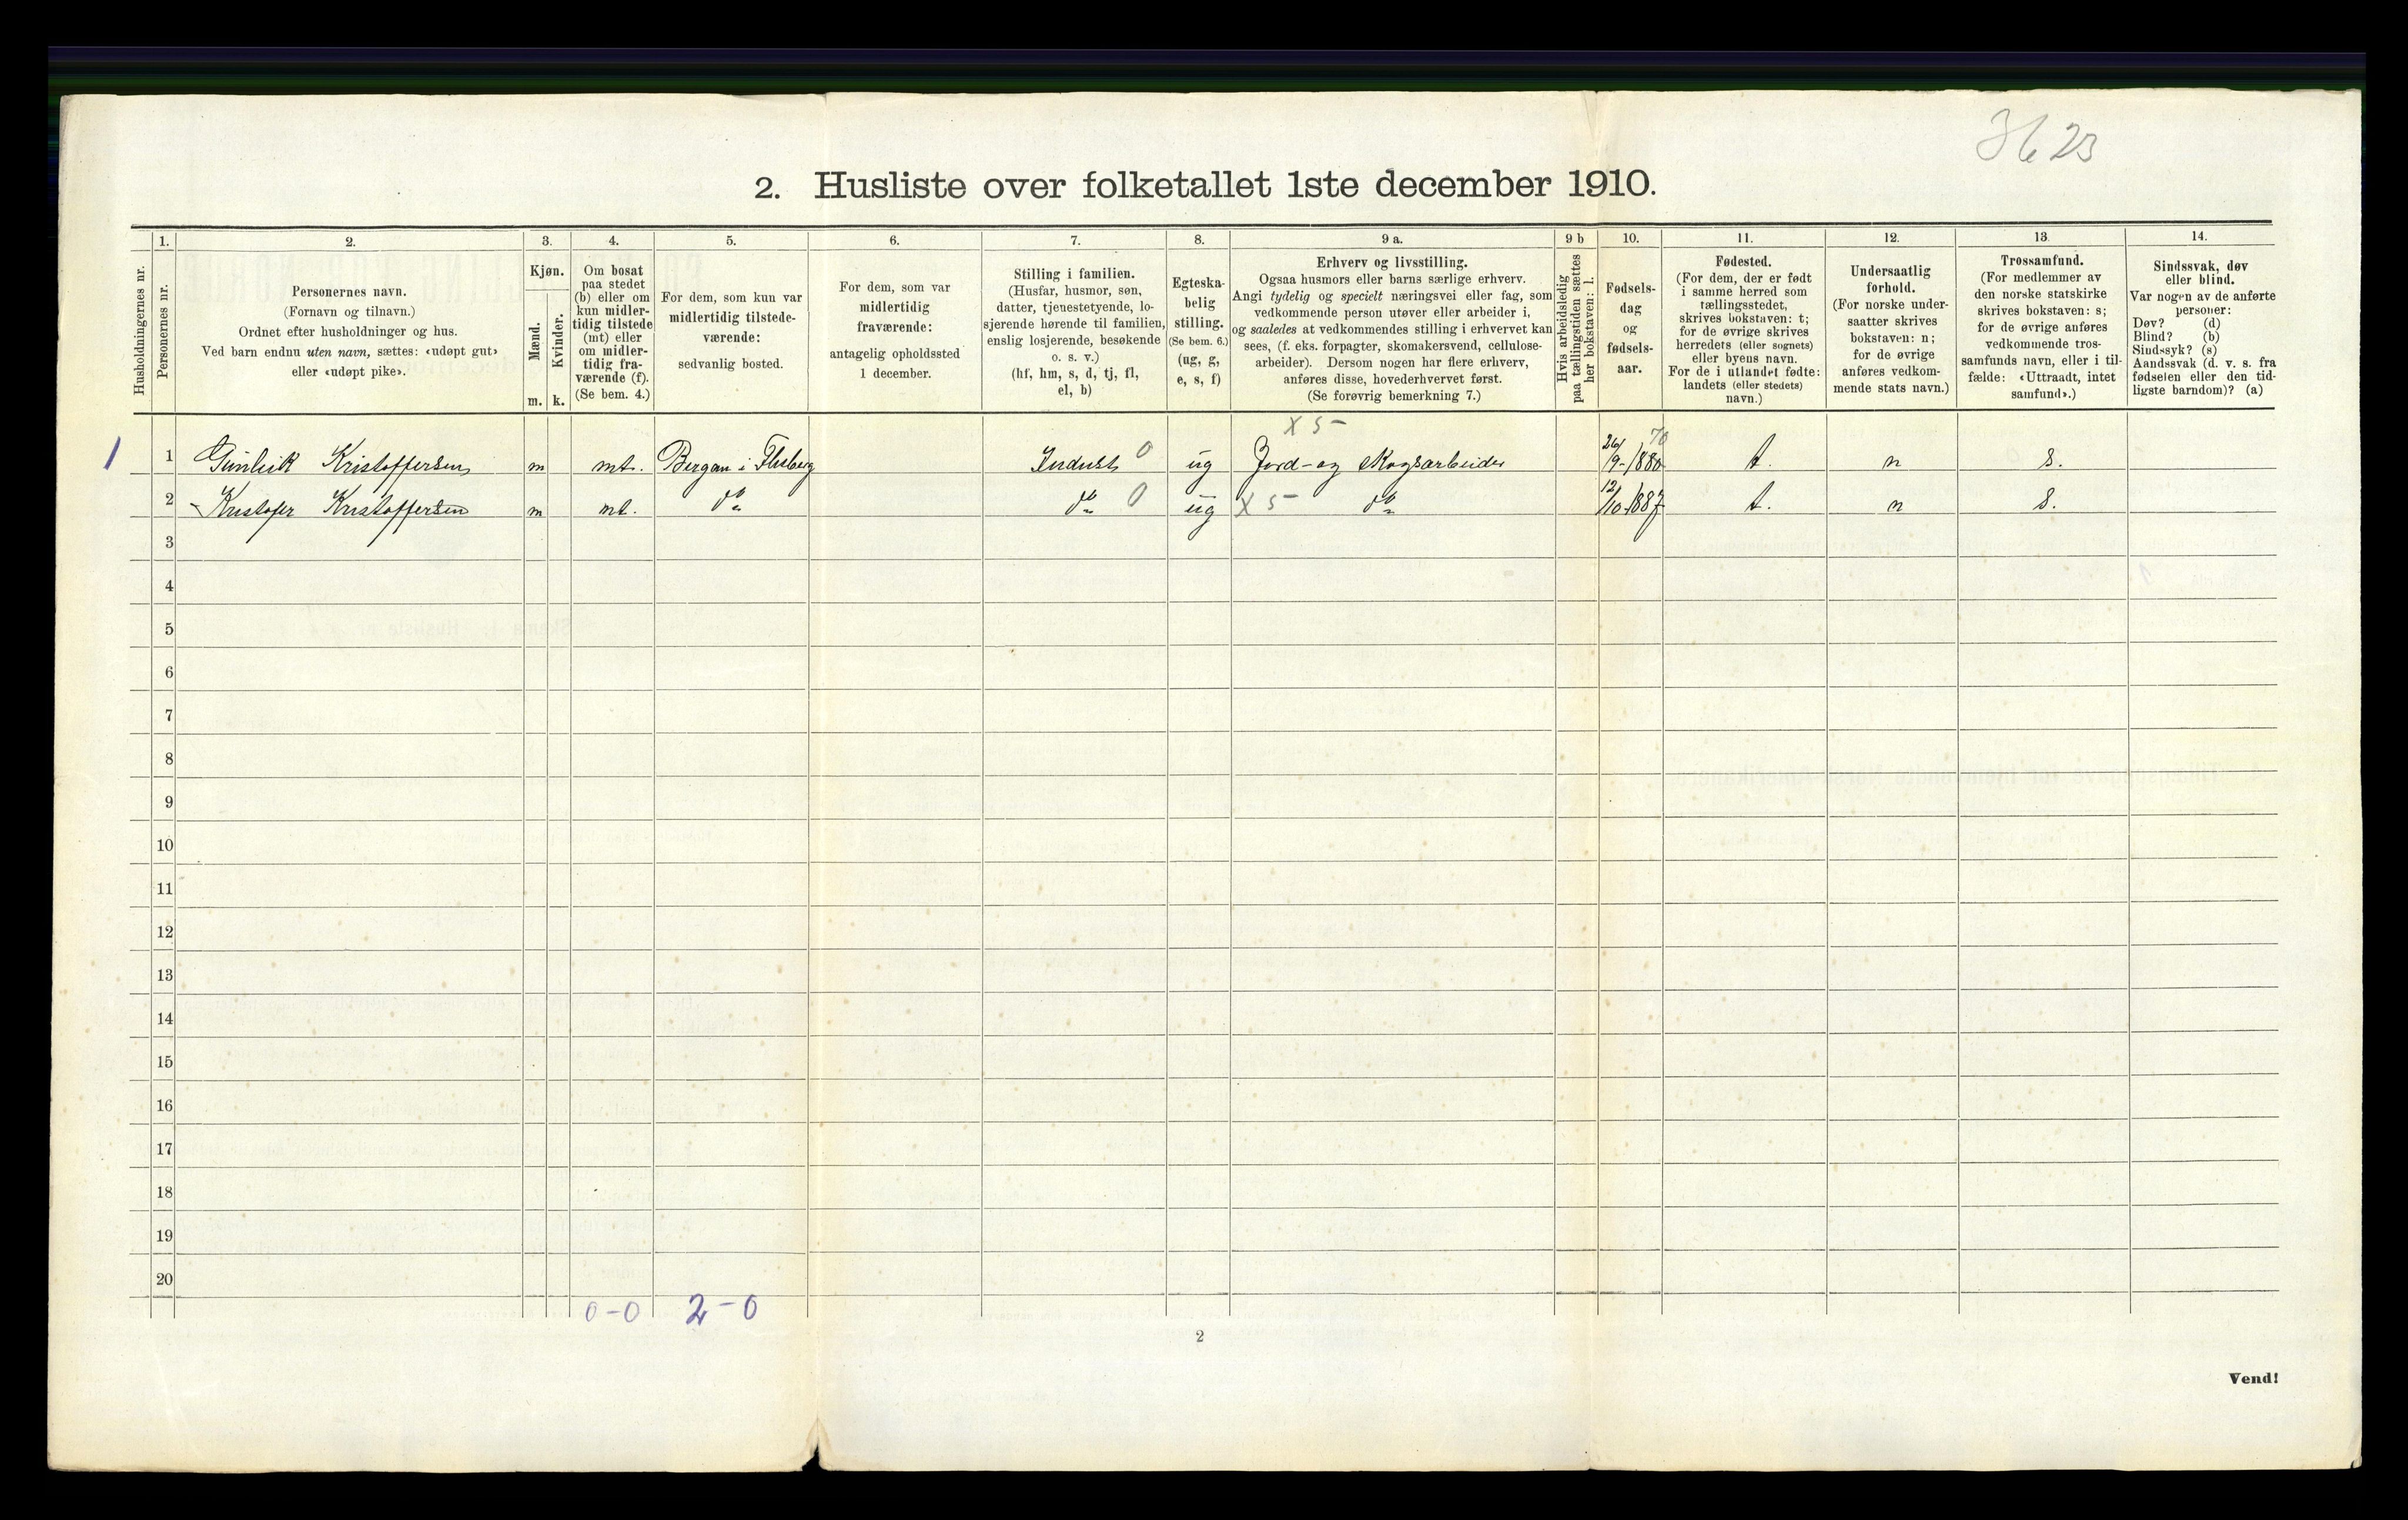 3623
2. Husliste over folketallet 1ste december 1910.
Husholdningernes nr.
1.
Personernes nr.
2.
Personernes navn.
(Fornavn og tilnavn.)
Ordnet efter husholdninger og hus.
Ved barn endnu uten navn, sættes: «udøpt gut»
eller «udøpt pike».
3.
Kjøn.
Mænd.
Kvinder.
m.
k.
4.
Om bosat
paa stedet
(b) eller om
kun midler-
tidig tilstede
(mt) eller
om midler-
tidig fra-
værende (f).
(Se bem. 4.)
5.
For dem, som kun var
midlertidig tilstede-
værende:
sedvanlig bosted.
6.
For dem, som var
midlertidig
fraværende:
antagelig opholdssted
1 december.
7.
Stilling i familien.
(Husfar, husmor, søn,
datter, tjenestetyende, lo-
sjerende hørende til familien,
enslig losjerende, besøkende
o. s. v.)
(hf, hm, s, d, tj, fl,
el, b)
8.
Egteska-
belig
stilling.
(Se bem. 6.)
(ug, g,
e, s, f)
9 a.
Erhverv og livsstilling.
Ogsaa husmors eller barns særlige erhverv.
Angi tydelig og specielt næringsvei eller fag, som
vedkommende person utøver eller arbeider i,
og saaledes at vedkommendes stilling i erhvervet kan
sees, (f. eks. forpagter, skomakersvend, cellulose-
arbeider). Dersom nogen har flere erhverv,
anføres disse, hovederhvervet først.
(Se forøvrig bemerkning 7.)
9 b
Hvis arbeidsledig
paa tællingstiden sættes
her bokstaven: l.
10.
Fødsels-
dag
og
fødsels-
aar.
11.
Fødested.
(For dem, der er født
i samme herred som
tællingsstedet,
skrives bokstaven: t;
for de øvrige skrives
herredets (eller sognets)
eller byens navn.
For de i utlandet fødte:
landets (eller stedets)
navn.)
12.
Undersaatlig
forhold.
(For norske under-
saatter skrives
bokstaven: n;
for de øvrige
anføres vedkom-
mende stats navn.)
13.
Trossamfund.
(For medlemmer av
den norske statskirke
skrives bokstaven: s;
for de øvrige anføres
vedkommende tros-
samfunds navn, eller i til-
fælde: «Uttraadt, intet
samfund».)
14.
Sindssvak, døv
eller blind.
Var nogen av de anførte
personer:
Døv? (d)
Blind? (b)
Sindssyk? (s)
Aandssvak (d. v. s. fra
fødselen eller den tid-
ligste barndom)? (a)
X 5 -
1 1 Gunleik Kristoffersen m mt. Bergan i Flesberg 0 ug Jord- og Skogsarbeider 26/9-1880 70 t. n s.
2 Kristofer Kristoffersen m mt. do do 0 ug X 5 - do 12/10-1887 t. n s.
3
4
5
6
7
8
9
10
11
12
13
14
15
16
17
18
19
20
0-0 2-0
2
Vend!